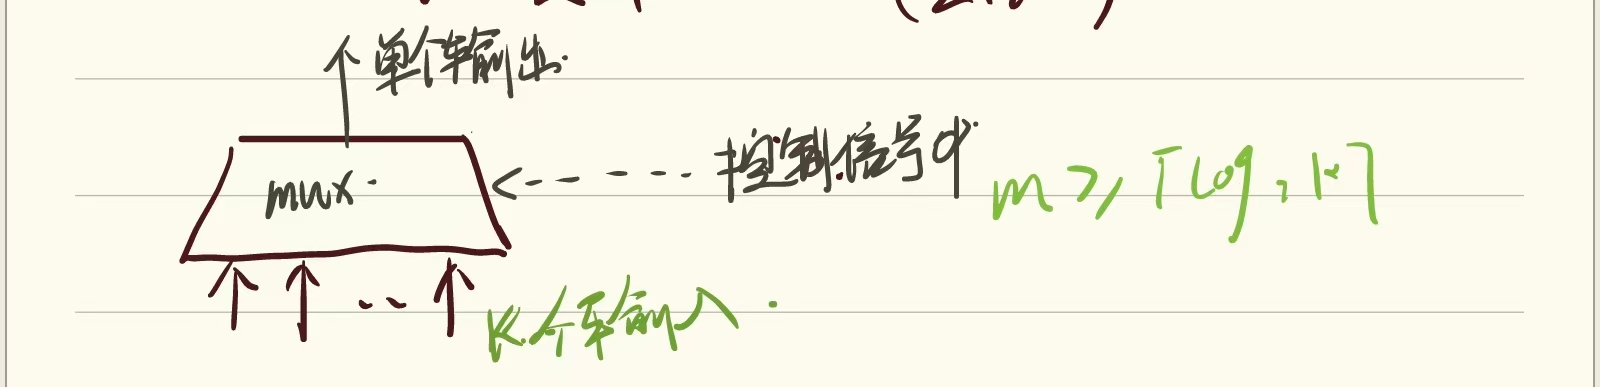 单个输出
mux
控制信号
m ≥ ⌈log₂K⌉
K个输入